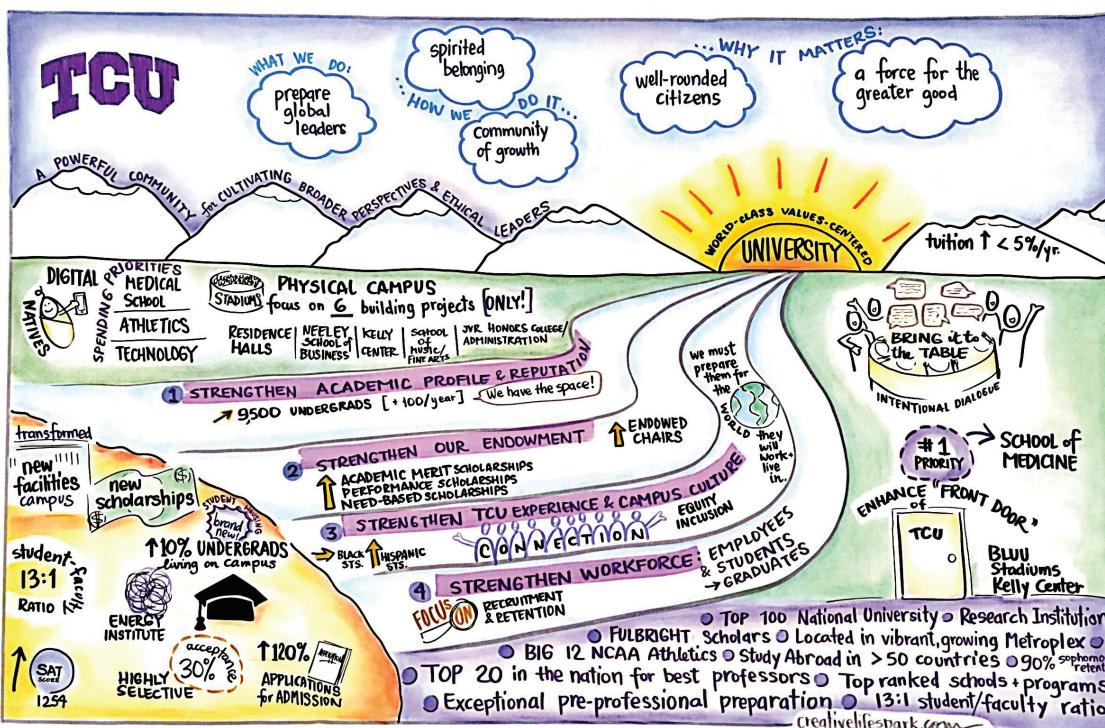 TCU
WHAT WE DO:
prepare
global
leaders
spirited
belonging
...HOW WE DO IT...
community
of growth
...WHY IT MATTERS:
well-rounded
citizens
a force for the
greater good
A POWERFUL COMMUNITY for CULTIVATING BROADER PERSPECTIVES & ETHICAL LEADERS
WORLD-CLASS VALUES-CENTERED
UNIVERSITY
tuition ↑ < 5%/yr.
DIGITAL
NATIVES
SPENDING PRIORITIES
MEDICAL
SCHOOL
ATHLETICS
TECHNOLOGY
STADIUMS
PHYSICAL CAMPUS
focus on 6 building projects [ONLY!]
RESIDENCE
HALLS
NEELEY
SCHOOL of
BUSINESS
KELLY
CENTER
SCHOOL
of
MUSIC/
FINE ARTS
JVR HONORS COLLEGE/
ADMINISTRATION
1 STRENGTHEN ACADEMIC PROFILE & REPUTATION
9,500 UNDERGRADS [+100/year]
We have the space!
2 STRENGTHEN OUR ENDOWMENT
↑ ENDOWED
CHAIRS
↑ ACADEMIC MERIT SCHOLARSHIPS
PERFORMANCE SCHOLARSHIPS
NEED-BASED SCHOLARSHIPS
3 STRENGTHEN TCU EXPERIENCE & CAMPUS CULTURE
→ BLACK
STS.
↑ HISPANIC
STS.
CONNECTION
EQUITY
INCLUSION
4 STRENGTHEN WORKFORCE: EMPLOYEES
& STUDENTS
→ GRADUATES
FOCUS ON
RECRUITMENT
& RETENTION
We must
prepare
them for
the
WORLD
they
will
work +
live
in..
BRING it to
the TABLE
INTENTIONAL DIALOGUE
#1
PRIORITY
SCHOOL of
MEDICINE
ENHANCE "FRONT DOOR"
of
TCU
BLUU
Stadiums
Kelly Center
transformed
"new"
facilities
campus
new
scholarships
($)
($)
STUDENT HOUSING
brand
new!
↑10% UNDERGRADS
living on campus
student
faculty
13:1
RATIO
ENERGY
INSTITUTE
SAT
SCORE
1254
HIGHLY
SELECTIVE
acceptance
30%
↑120%
APPLICATIONS
for ADMISSION
TOP 100 National University Research Institution
FULBRIGHT Scholars Located in vibrant, growing Metroplex
BIG 12 NCAA Athletics Study Abroad in > 50 countries 90% sophomo
retent
TOP 20 in the nation for best professors Top ranked schools + programs
Exceptional pre-professional preparation 13:1 student/faculty ratio
creativelifespark.com